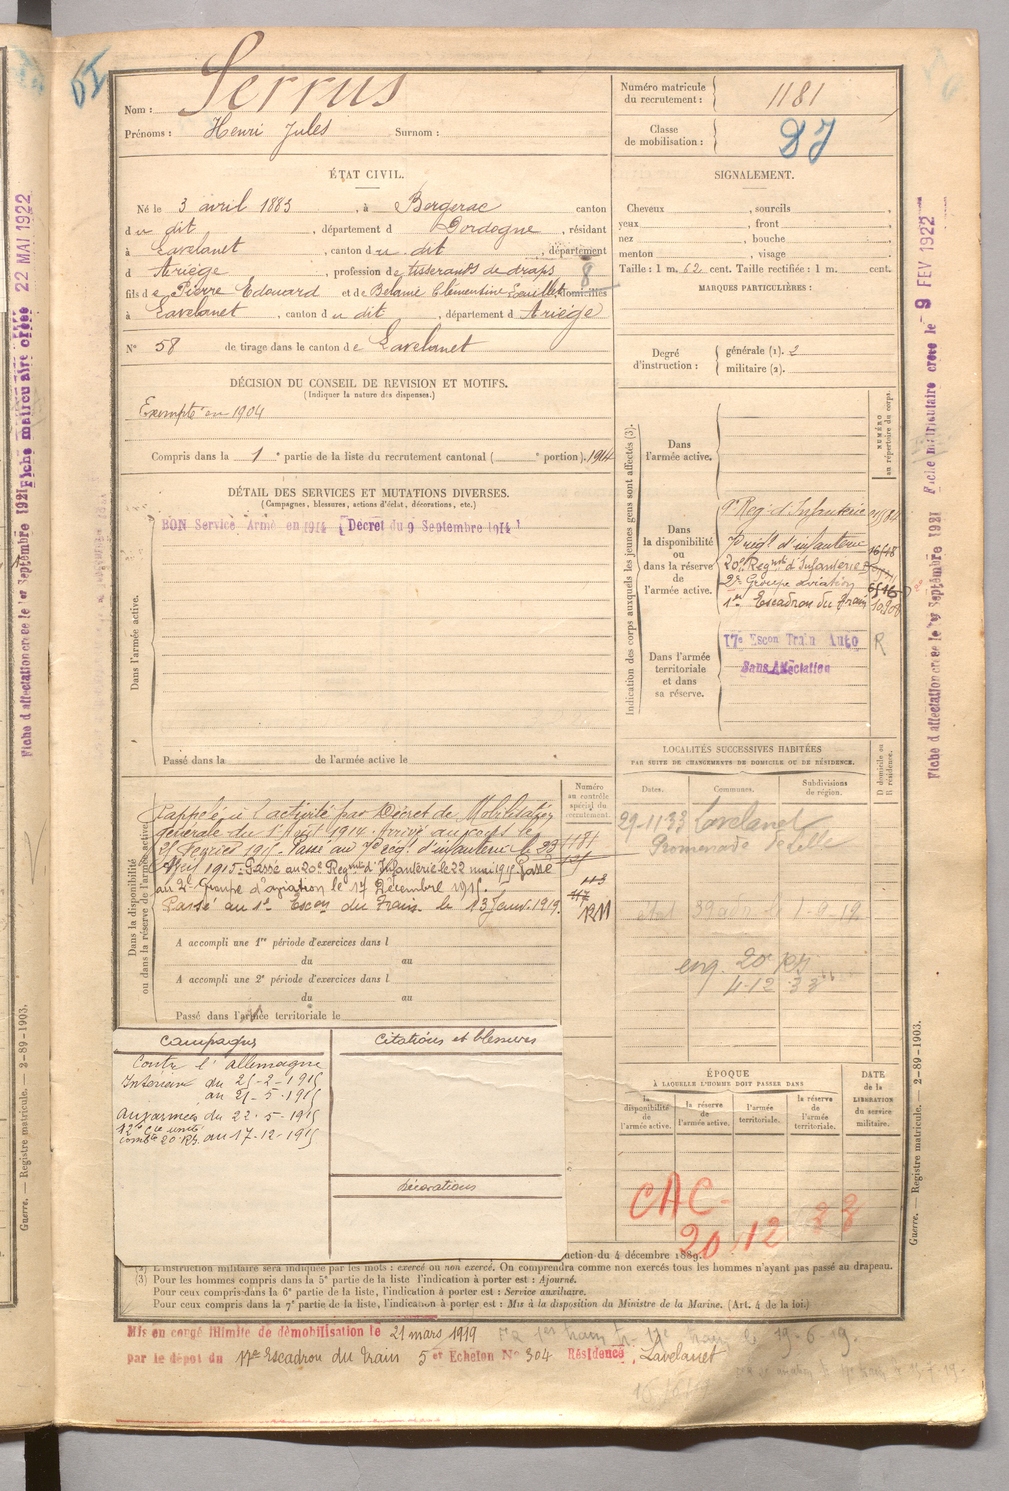 Nom : Serrus
Prénoms : Henri Jules Surnom :
Numéro matricule du recrutement : 1181
Classe de mobilisation :
ÉTAT CIVIL.
Né le 3 avril 1883, à Bergerac canton
du dit, département d Dordogne, résidant
à Lavelanet, canton du dit, département
d Ariège, profession de tisserands de draps 8
fils de Pierre Edouard et de Belamie Clémentine domiciliés
à Lavelanet, canton du dit, département d Ariège
N° 58 de tirage dans le canton de Lavelanet
SIGNALEMENT.
Cheveux , sourcils ,
yeux , front ,
nez , bouche ,
menton , visage
Taille : 1 m. 62 cent. Taille rectifiée : 1 m. cent.
MARQUES PARTICULIÈRES :
Degré d'instruction : générale (1). 2
militaire (2).
DÉCISION DU CONSEIL DE REVISION ET MOTIFS.
(Indiquer la nature des dispenses.)
Exempté en 1904
Compris dans la 1e partie de la liste du recrutement cantonal ( e portion). 1914
DÉTAIL DES SERVICES ET MUTATIONS DIVERSES.
(Campagnes, blessures, actions d'éclat, décorations, etc.)
BON Service Armé en 1914 (Décret du 9 Septembre 1914)
Dans l'armée active.
Passé dans la de l'armée active le
Indication des corps auxquels les jeunes gens sont affectés (3).
NUMÉRO au répertoire du corps.
Dans l'armée active.
Dans la disponibilité ou dans la réserve de l'armée active.
Reg. d'Infanterie
7e régt d'infanterie
20e Regmt d'Infanterie
2e Groupe aviation
1er Escadron du Train
Dans l'armée territoriale et dans sa réserve.
17e Escon Train Auto R
Sans Affectation
LOCALITÉS SUCCESSIVES HABITÉES
PAR SUITE DE CHANGEMENTS DE DOMICILE OU DE RÉSIDENCE.
Dates. Communes. Subdivisions de région. D domicile ou R résidence.
29-11-33 Lavelanet
Promenade de Lille
eng. 20e
4-12-33
Dans la disponibilité ou dans la réserve de l'armée active.
Numéro au contrôle spécial du recrutement.
Rappelé à l'activité par Décret de Mobilisation
générale du 1er Août 1914. Arrivé au corps le
25 Fevrier 1915. Passé au 7e régt d'infanterie le 23 1181
1915. Passé au 20e Regmt d'Infanterie le 22 mai 1915 Passé
au 2e Groupe d'aviation le 17 Décembre 1915. 113
Passé au 1er Escon du Train le 13 Janv. 1919.
A accompli une 1re période d'exercices dans l
du au
A accompli une 2e période d'exercices dans l
du au
Passé dans l'armée territoriale le
Campagnes
Contre l'allemagne
Intérieur du 25-2-1915
au 21-5-1915
Aux armées du 22-5-1915
au 17-12-1915
Citations et blessures
Décorations
ÉPOQUE
À LAQUELLE L'HOMME DOIT PASSER DANS
la disponibilité de l'armée active.
la réserve de l'armée active.
l'armée territoriale.
la réserve de l'armée territoriale.
DATE de la LIBÉRATION du service militaire.
CAC-
20 12 33
uction du 4 décembre 1889.
(2) L'instruction militaire sera indiquée par les mots : exercé ou non exercé. On comprendra comme non exercés tous les hommes n'ayant pas passé au drapeau.
(3) Pour les hommes compris dans la 5e partie de la liste l'indication à porter est : Ajourné.
Pour ceux compris dans la 6e partie de la liste, l'indication à porter est : Service auxiliaire.
Pour ceux compris dans la 7e partie de la liste, l'indication à porter est : Mis à la disposition du Ministre de la Marine. (Art. 4 de la loi.)
Mis en congé illimité de démobilisation le 21 mars 1919
par le dépôt du 17e Escadron du Train 5e Echelon N° 304 Résidence, Lavelanet
Fiche matriculaire créée 22 MAI 1922
Fiche d'affectation créée le 1er Septembre 1921
Guerre. — Registre matricule. — 2-89-1903.
Fiche matriculaire créée le 9 FEV 1922
Fiche d'affectation créée le 1er Septembre 1921
Guerre. — Registre matricule. — 2-89-1903.